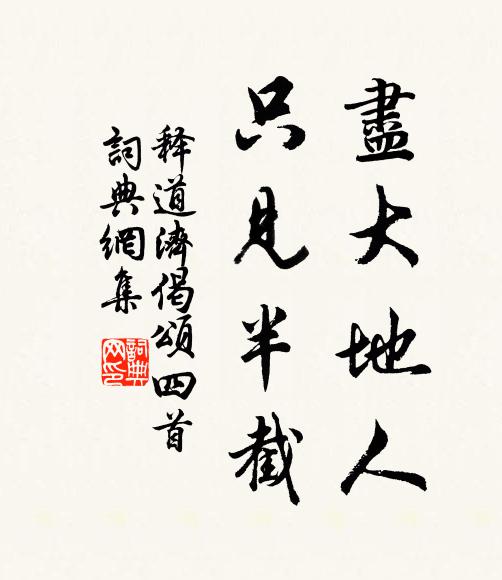 盡大地人
只見半截
释道濟偈頌四首
詞典網集
詞典網印